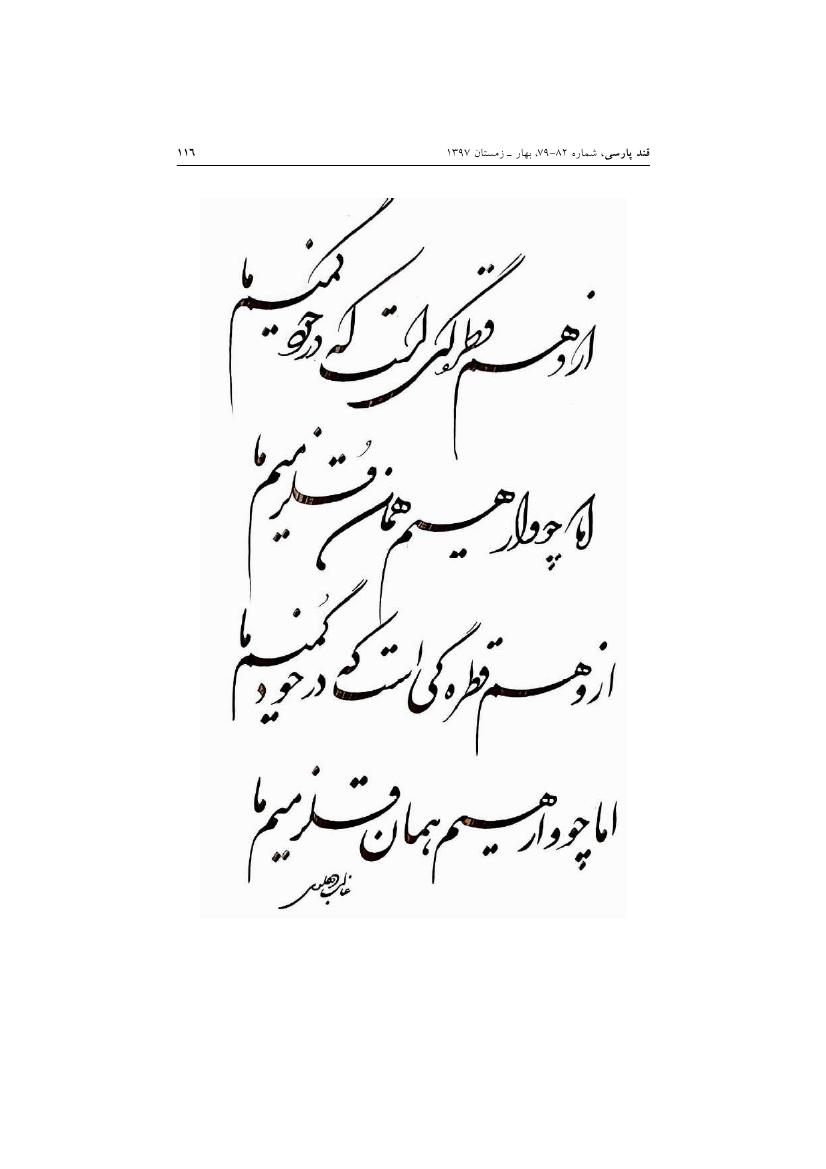 قند پارسی، شماره ۸۲-۷۹، بهار ـ زمستان ۱۳۹۷ ۱۱٦
از وهم قطرگی است که در خود گمیم ما
اما چو وارهیم همان قلزمیم ما
از وهم قطره‌گی است که در خود گمیم ما
اما چو وارهیم همان قلزمیم ما
غالب دهلوی